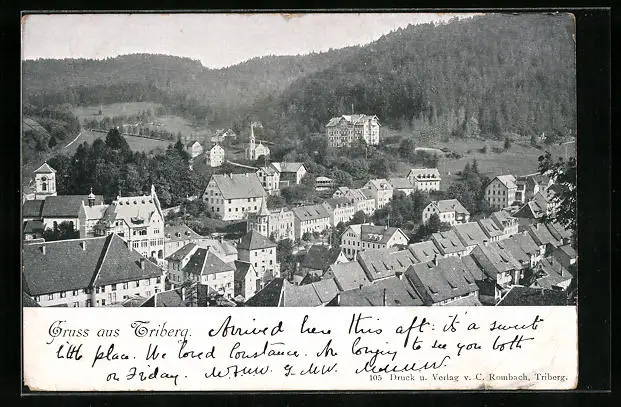 Gruss aus Triberg. Arrived here this aft: it's a sweet
little place. We loved Constance. Am longing to see you both
on Friday.
105 Druck u. Verlag v. C. Rombach, Triberg.